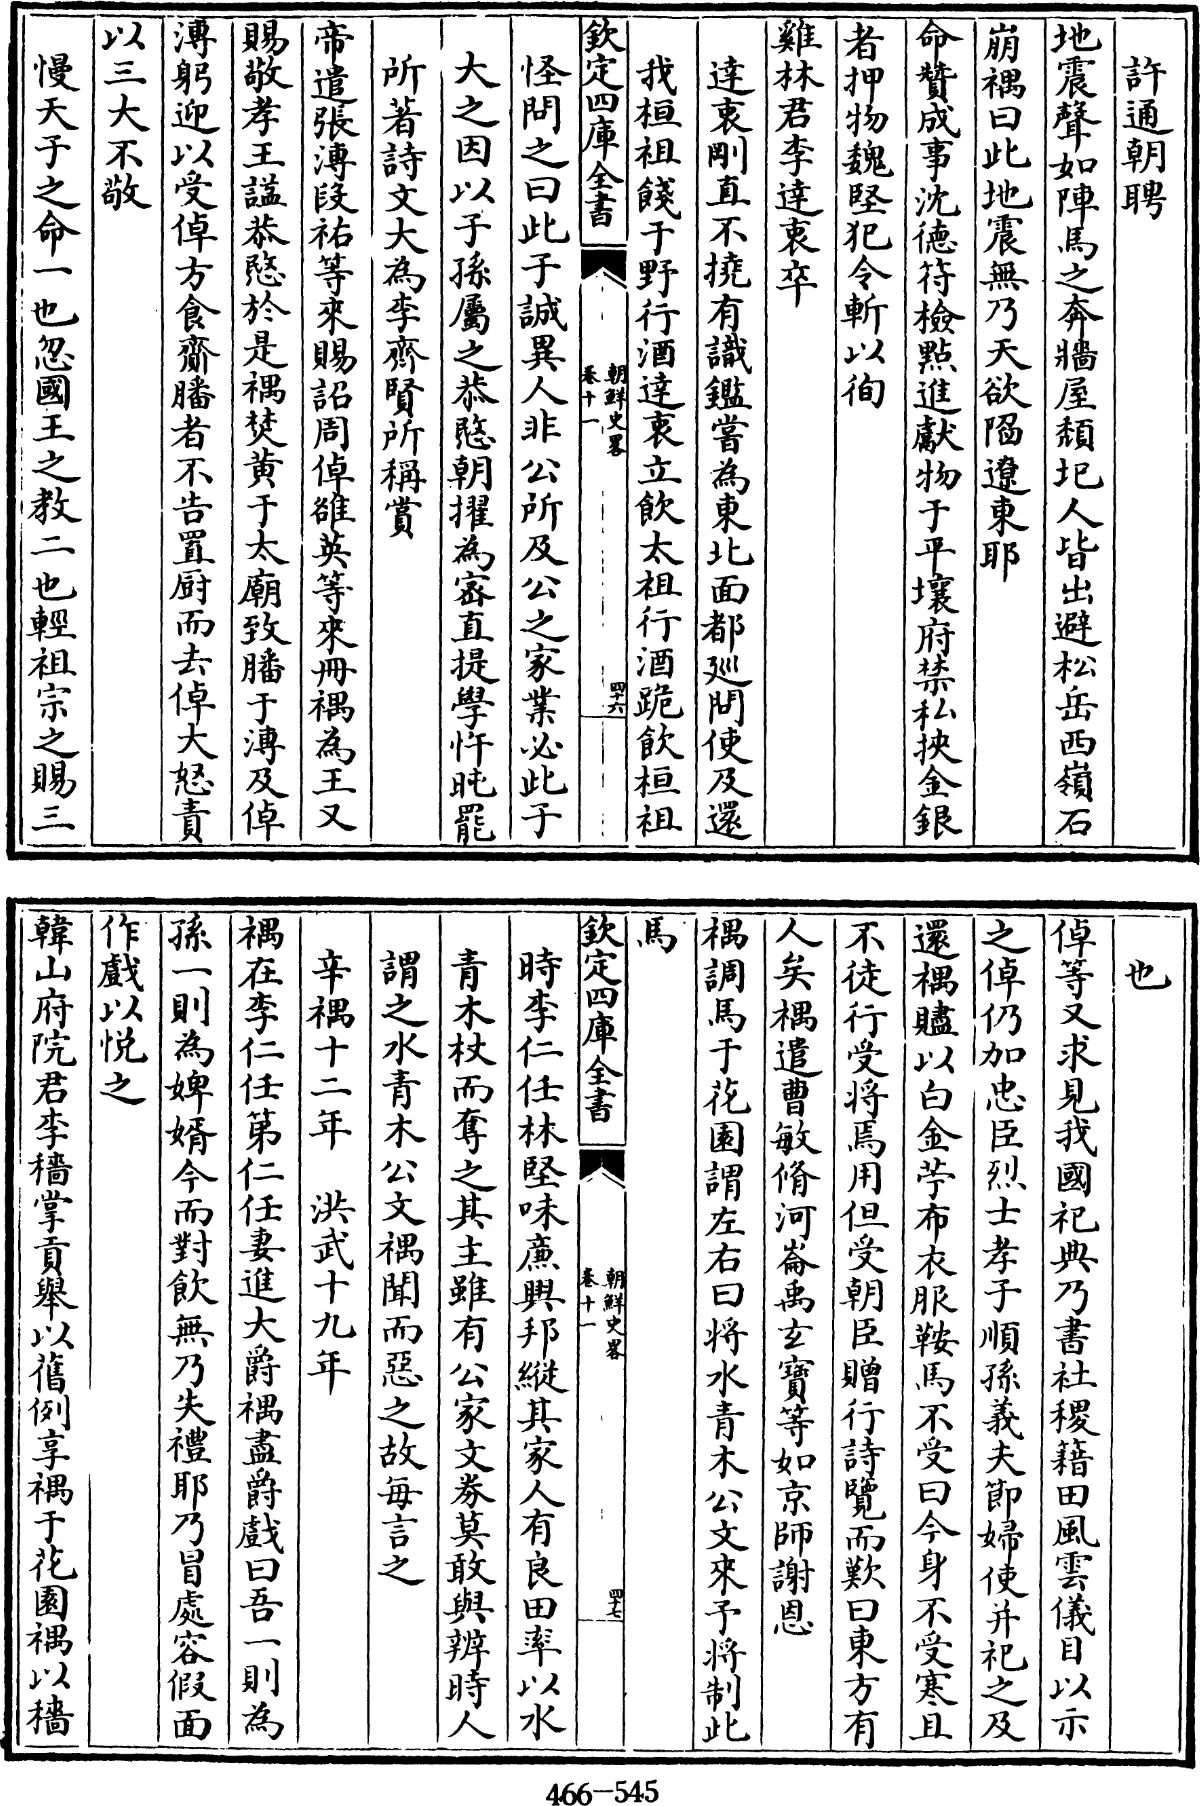 許通朝聘
地震聲如陣馬之奔牆屋頹圮人皆出避松岳西嶺石
崩禑曰此地震無乃天欲陷遼東耶
命贊成事沈德符檢點進獻物于平壤府禁私挾金銀
者押物魏堅犯令斬以徇
雞林君李達衷卒
達衷剛直不撓有識鑑嘗為東北面都廵問使及還
我桓祖餞于野行酒達衷立飲太祖行酒跪飲桓祖
欽定四庫全書
朝鮮史畧
卷十一
四十六
怪問之曰此子誠異人非公所及公之家業必此子
大之因以子孫屬之恭愍朝擢為宻直提學忤旽罷
所著詩文大為李齊賢所稱賞
帝遣張溥段祐等來賜詔周倬雒英等來冊禑為王又
賜敬孝王諡恭愍於是禑焚黄于太廟致膰于溥及倬
溥躬迎以受倬方食齋膰者不告置厨而去倬大怒責
以三大不敬
慢天子之命一也忽國王之教二也輕祖宗之賜三
也
倬等又求見我國祀典乃書社稷籍田風雲儀目以示
之倬仍加忠臣烈士孝子順孫義夫節婦使并祀之及
還禑贐以白金苧布衣服鞍馬不受曰今身不受寒且
不徒行受將焉用但受朝臣贈行詩覽而歎曰東方有
人矣禑遣曹敏脩河崙禹玄寶等如京師謝恩
禑調馬于花園謂左右曰將水青木公文來予將制此
馬
欽定四庫全書
朝鮮史畧
卷十一
四十七
時李仁任林堅味廉興邦縱其家人有良田率以水
青木杖而奪之其主雖有公家文券莫敢與辨時人
謂之水青木公文禑聞而惡之故每言之
辛禑十二年　洪武十九年
禑在李仁任第仁任妻進大爵禑盡爵戲曰吾一則為
孫一則為婢婿今而對飲無乃失禮耶乃冒處容假面
作戲以悦之
韓山府院君李穡掌貢舉以舊例享禑于花園禑以穡
466-545